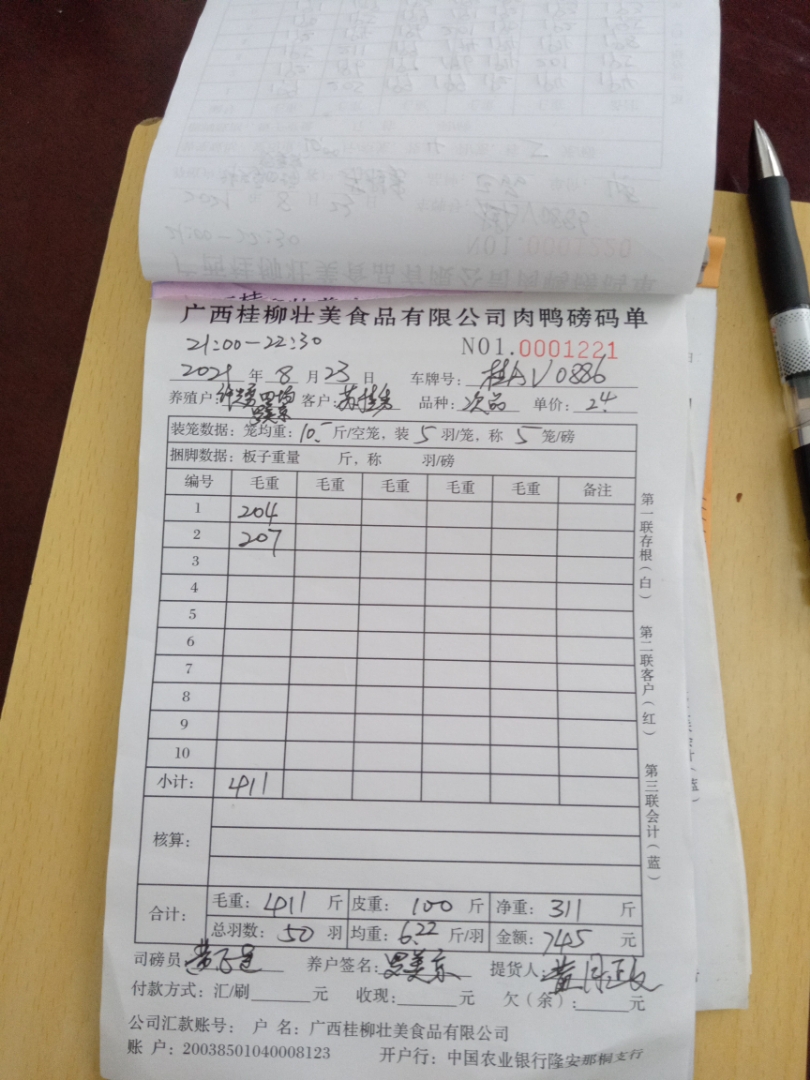 广西桂柳壮美食品有限公司肉鸭磅码单
21:00-22:30 NO1.0001221
2021年8月23日 车牌号：桂AV0886
养殖户： 客户： 品种：次品 单价：2.4
装笼数据：笼均重：10.-斤/空笼，装5羽/笼，称5笼/磅
捆脚数据：板子重量 斤，称 羽/磅
编号 毛重 毛重 毛重 毛重 毛重 备注
1 204
2 207
3
4
5
6
7
8
9
10
小计： 411
核算：
合计： 毛重：411斤 皮重：100斤 净重：311斤
总羽数：50羽 均重：6.22斤/羽 金额：745元
司磅员 养户签名：罗美京 提货人：
付款方式：汇/刷______元 收现：______元 欠（余）：_____元
公司汇款账号： 户 名：广西桂柳壮美食品有限公司
账 户：20038501040008123 开户行：中国农业银行隆安那桐支行
第一联存根（白）
第二联客户（红）
第三联会计（蓝）